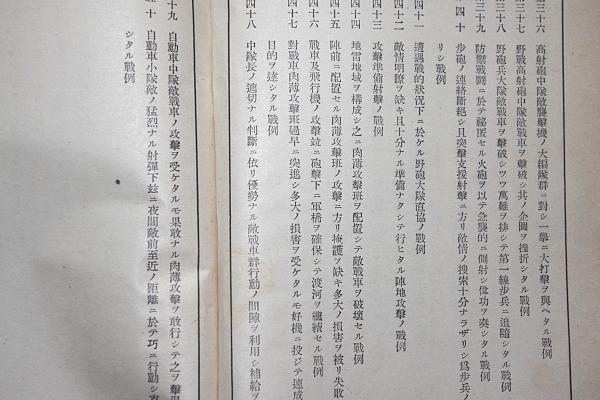 三十六 高射砲中隊敵襲擊機ノ大編隊群ニ對シ一擧ニ大打擊ヲ與ヘタル戰例
三十七 野戰高射砲中隊敵戰車ヲ擊破シ其ノ企圖ヲ挫折シタル戰例
三十八 野砲兵大隊敵戰車ヲ擊破シツツ萬難ヲ排シテ第一線步兵ニ追隨シタル戰例
三十九 防禦戰鬪ニ於テ祕匿セル火砲ヲ以テ急襲的ニ側射シ偉功ヲ奏シタル戰例
四十 步砲ノ連絡斷絕シ且突擊支援射擊ニ方リ敵情ノ搜索十分ナラザリシ爲步兵ノ
リシ戰例
四十一 遭遇戰的狀況下ニ於ケル野砲大隊直協ノ戰例
四十二 敵情明瞭ヲ缺キ且十分ナル準備ナクシテ行ヒタル陣地攻擊ノ戰例
四十三 攻擊準備射擊ノ戰例
四十四 地雷地域ヲ構成シ之ニ肉薄攻擊班ヲ配置シテ敵戰車ヲ破壞セル戰例
四十五 陣前ニ配置セル肉薄攻擊班ノ攻擊ニ方リ掩護ヲ缺キ多大ノ損害ヲ被リ失敗
四十六 戰車及飛行機ノ攻擊竝ニ砲擊下ニ軍橋ヲ確保シテ渡河ヲ繼續セル戰例
四十七 對戰車肉薄攻擊班過早ニ突進シ多大ノ損害ヲ受ケタルモ好機ニ投ジテ速成
目的ヲ達シタル戰例
四十八 中隊長ノ適切ナル判斷ニ依リ優勢ナル敵戰車群行動ノ間隙ヲ利用シ補給ヲ
十九 自動車中隊敵戰車ノ攻擊ヲ受ケタルモ果敢ナル肉薄攻擊ヲ敢行シテ之ヲ擊
十 自動車小隊敵ノ猛烈ナル射彈下玆ニ夜間敵前至近ノ距離ニ於テ巧ニ行動シ
シタル戰例